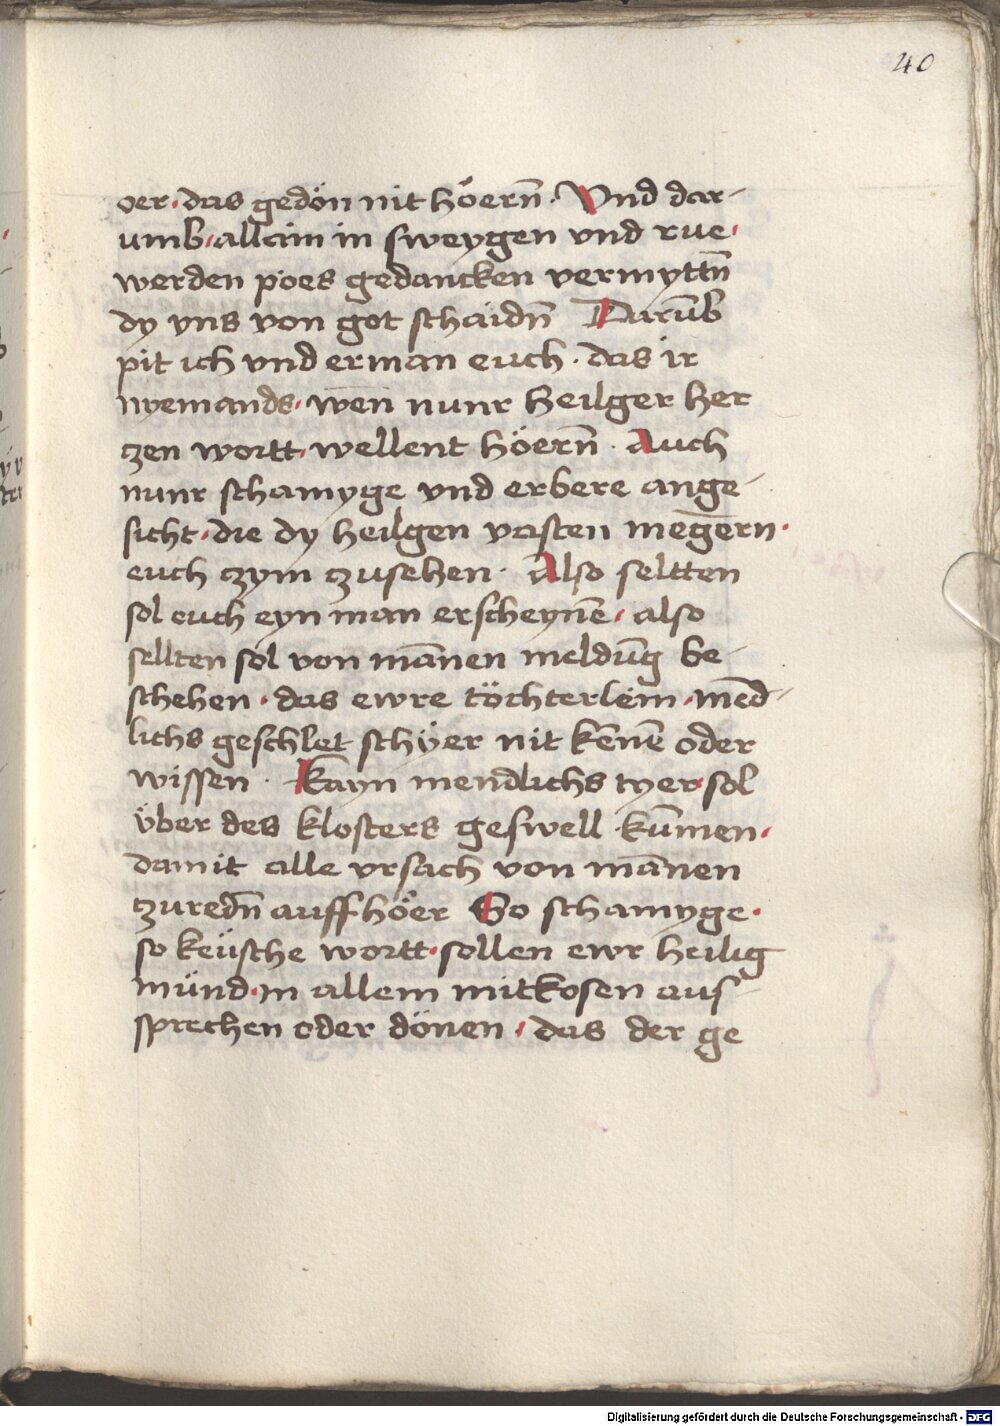 40
oer · das gedön nit höern̄ · Vnd dar-
umb · allain in sweygen vnd rue ·
werden poes gedancken vermyttn̄
dy vns von got schaidn̄ Darūb
pit ich vnd erman euch · das ir
nyemands · wen̄ nunr heilger her
czen wortt · wellent höern̄ · Auch
nunr schamyge vnd erbere ange-
sicht · die dy heilgen vasten megern ·
euch czym czusehen · Also seltten
sol euch eyn man erscheynē · also
sellten sol von mānen meldūg be-
schehen · das ewre töchterlem · mēd-
lichs geschlet schÿer nit kēnē oder
wissen · Kayn mendlichs tyer sol
über des klosters geswell · kūmen ·
damit alle vrsach von mānen
czuredn̄ auffhöer So schamyge ·
so keüsche wortt · sollen ewr heilig
münd · in allem mitkosen aus-
sprechen oder dönen · das der ge
Digitalisierung gefördert durch die Deutsche Forschungsgemeinschaft - DFG